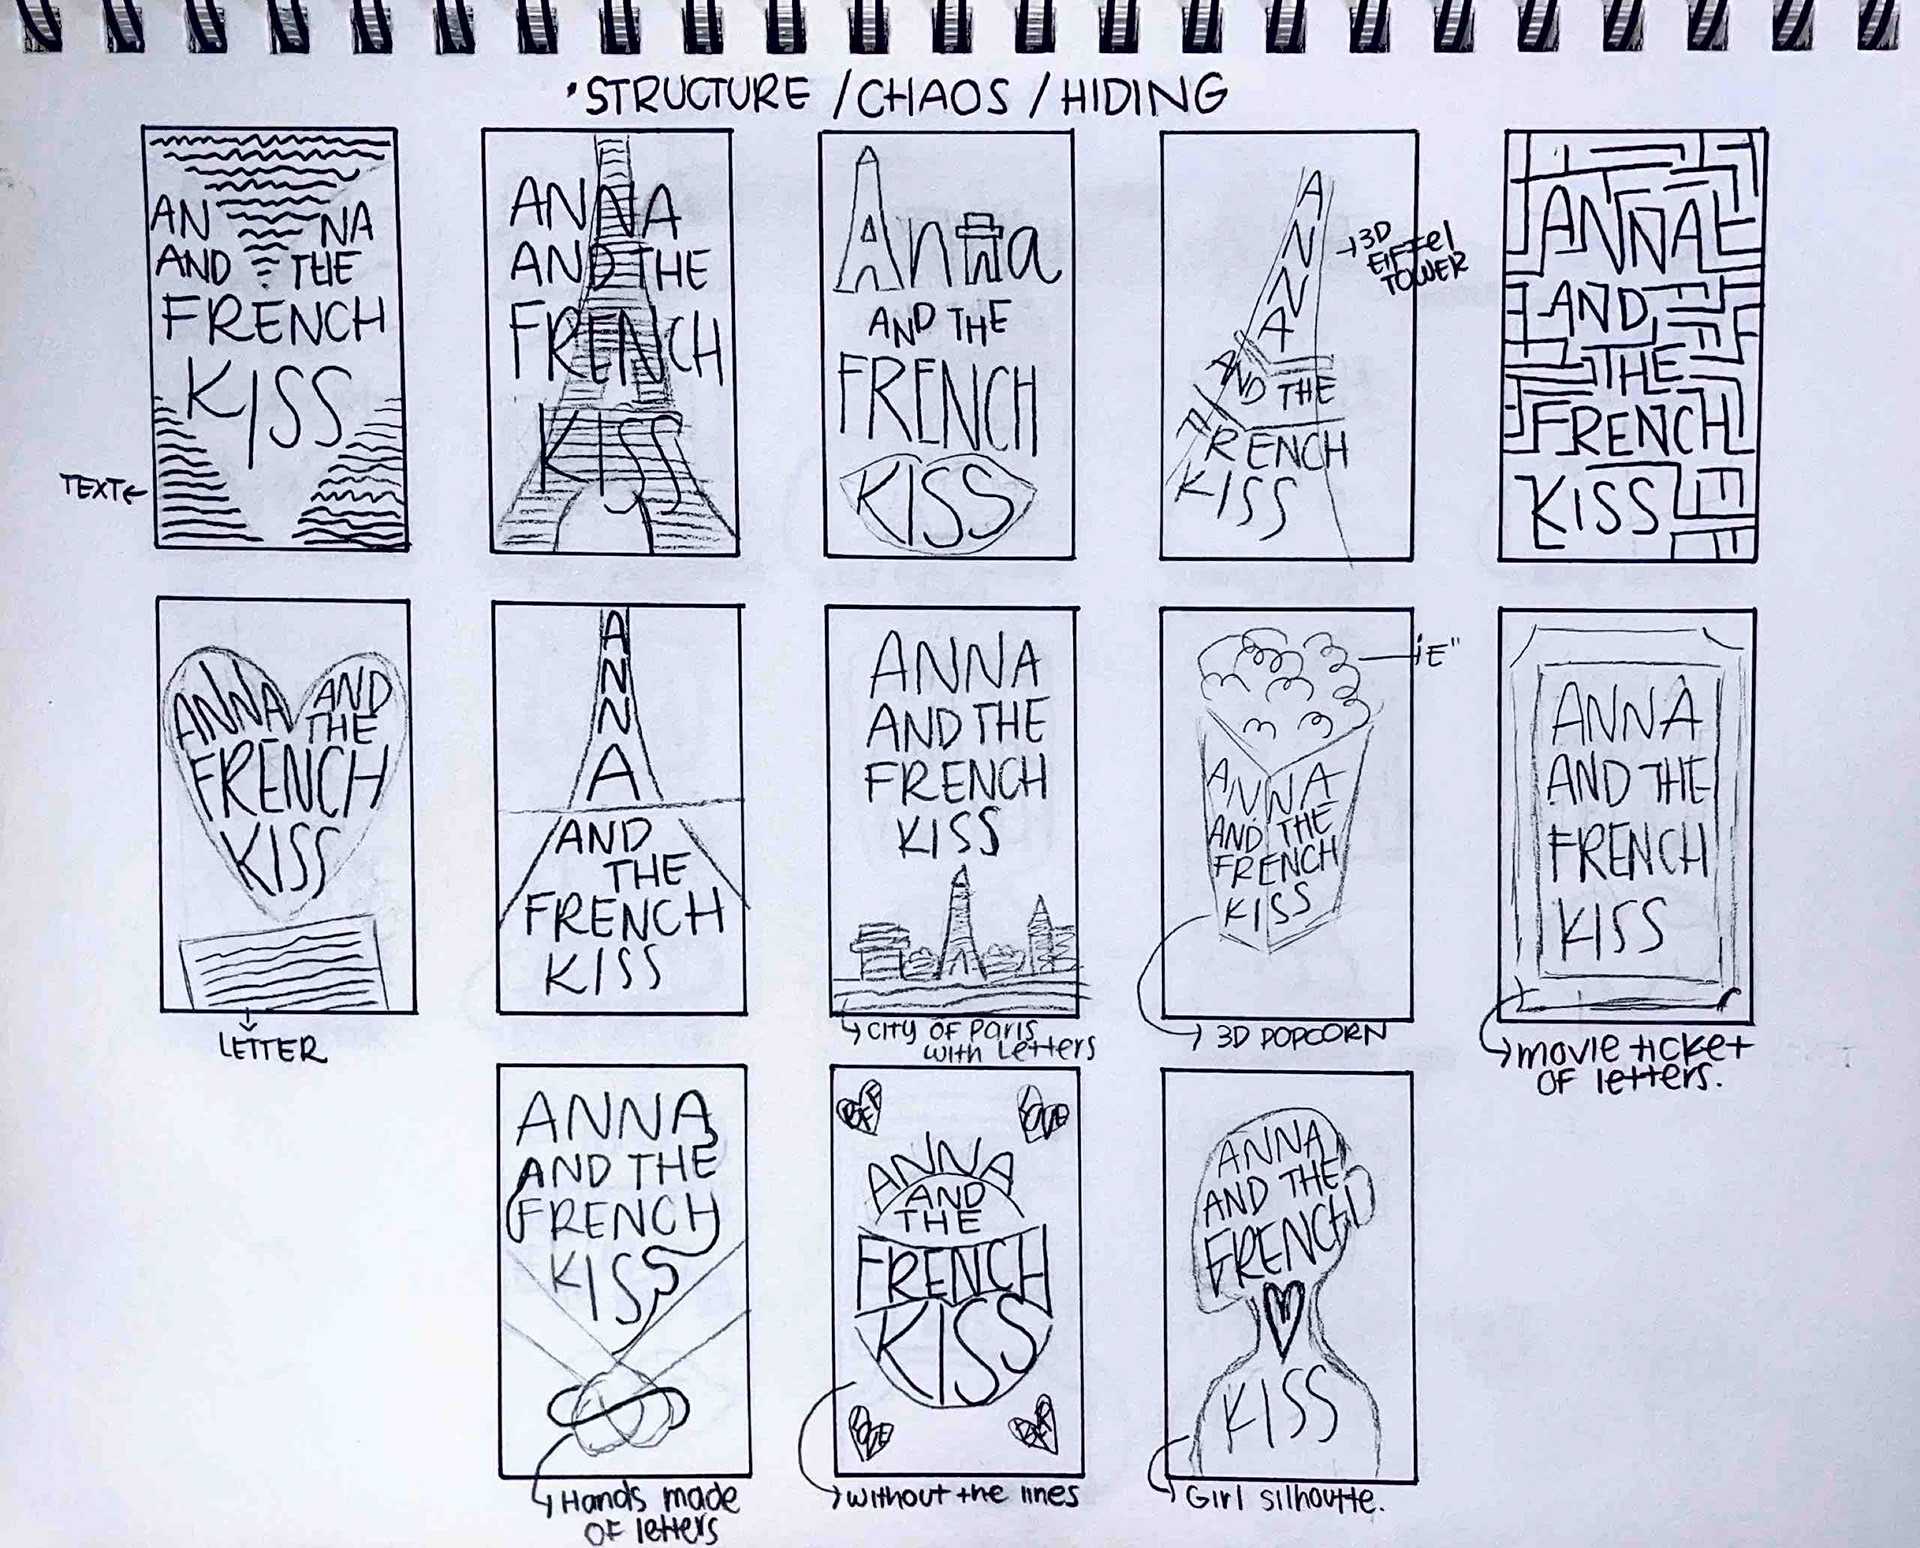 •STRUCTURE / CHAOS / HIDING
AN NA
AND THE
FRENCH
KISS
TEXT
ANNA
AND THE
FRENCH
KISS
Anna
AND THE
FRENCH
KISS
ANNA
AND THE
FRENCH
KISS
3D
EIFFEl
TOWER
ANNA
AND
THE
FRENCH
KISS
ANNA AND
THE
FRENCH
KISS
LETTER
ANNA
AND
THE
FRENCH
KISS
ANNA
AND THE
FRENCH
KISS
CITY OF PARIS
with Letters
ANNA
AND THE
FRENCH
KISS
"E"
3D POPCORN
ANNA
AND THE
FRENCH
KISS
movie ticket
OF letters.
ANNA
AND THE
FRENCH
KISS
Hands made
OF letters
ANNA
AND
THE
FRENCH
KISS
without the lines
ANNA
AND THE
FRENCH
KISS
Girl silhoutte.